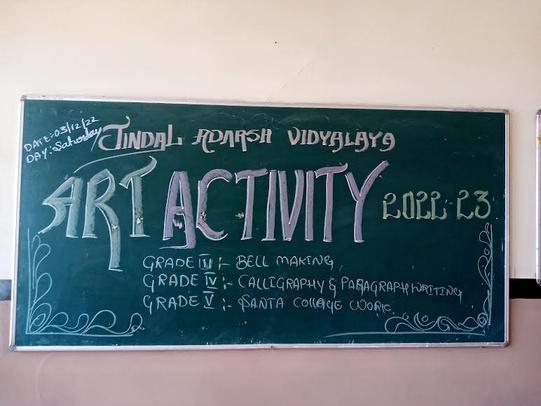 DATE:-03/12/22
DAY:-Saturday
JINDAL ADARSH VIDYALAYA
ART ACTIVITY 2022-23
GRADE III :- BELL MAKING,
GRADE IV :- CALLIGRAPHY & PARAGRAPH WRITING
GRADE V :- SANTA COLLAGE WORK.